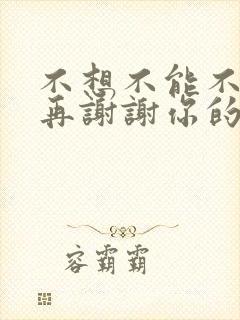 不想不能不
再謝謝你的
容霸霸